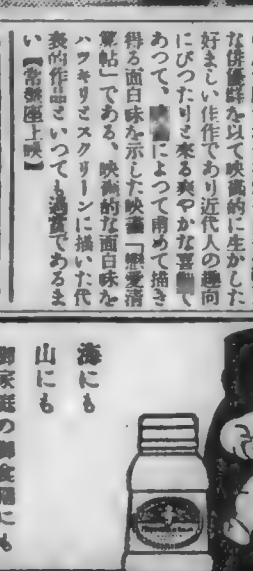 な俳優群を以て映画的に生かした
好ましい佳作であり近代人の趣向
にぴつたりと来る爽やかな喜劇で
あつて、によつて甫めて描き
得る面白味を示した映画「戀愛清
算帖」である、映画的な面白味を
ハツキリとスクリーンに描いた代
表的作品といつても過賞であるま
い【常盤座上映】
海にも
山にも
御家庭の御食膳にも